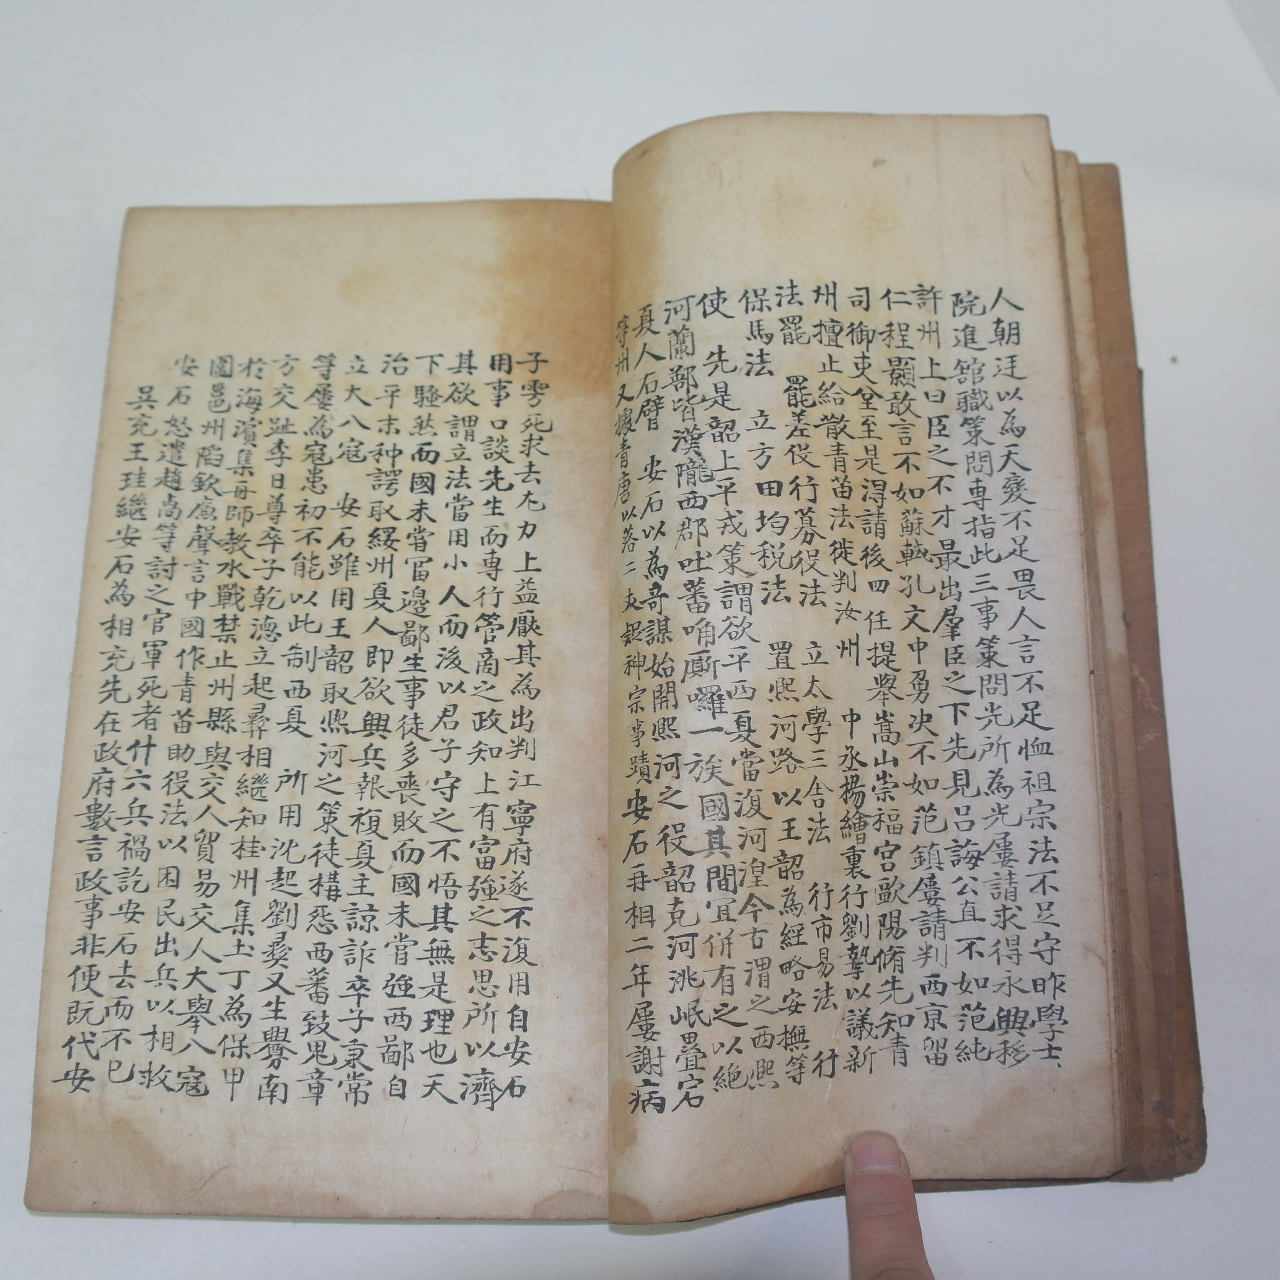 人朝迋以為天変不足畏人言不足恤祖宗法不足守昨學士
院進館職策問専指此三事策問光所為光屢請求得永興移
許州上曰臣之不才最出羣臣之下先見吕誨公直不如范純
仁程顥敢言不如蘇軾孔文中勇决不如范鎮屢請判西京留
司御史坌至是淂請後四任提舉嵩山崇福宮歐陽脩先知青
州擅止給散青苗法徙判汝州 中丞楊繪裏行劉摯以議新
法罷 罷差役行募役法 立太學三舎法 行市易法 行
保馬法 立方田均税法 置熈河路以王韶為経略安撫等
使 先是韶上平戎策謂欲平西夏當復河湟今古渭之西熈
河蘭鄯皆漢隴西郡吐蕃唃厮囉一族國其間宜併有之以絶
夏人右臂 安石以為竒謀始開熈河之役韶克河洮岷疊宕
等州又據青唐以落二 神宗事蹟安石再相二年屢謝病
子雱死求去尤力上益厭其為出判江寧府遂不復用自安石
用事口談先生而専行管商之政知上有富強之志思所以濟
其欲謂立法當用小人而後以君子守之不悟其無是理也天
下騷然而國未甞冨邊鄙生事徒多喪敗而國未甞強西鄙自
治平末种諤取綏州夏人即欲興兵報複夏主諒訴卒子秉常
立大八寇 安石雖用王韶取熈河之策徒構怨西蕃致鬼章
等屡為寇患初不能以此制西夏 所用沈起劉彛又生釁南
方交趾李日尊卒子乾徳立起彛相繼知桂州集土丁為保甲
於海濱集舟師教水戰禁止州縣與交人貿易交人大舉八寇
圍邕州陷欽廉聲言中國作青苗助役法以困民出兵以相救
安石怒遣趙卨等討之官軍死者什六兵禍訖安石去而不已
吳充王珪繼安石為相充先在政府數言政事非便既代安